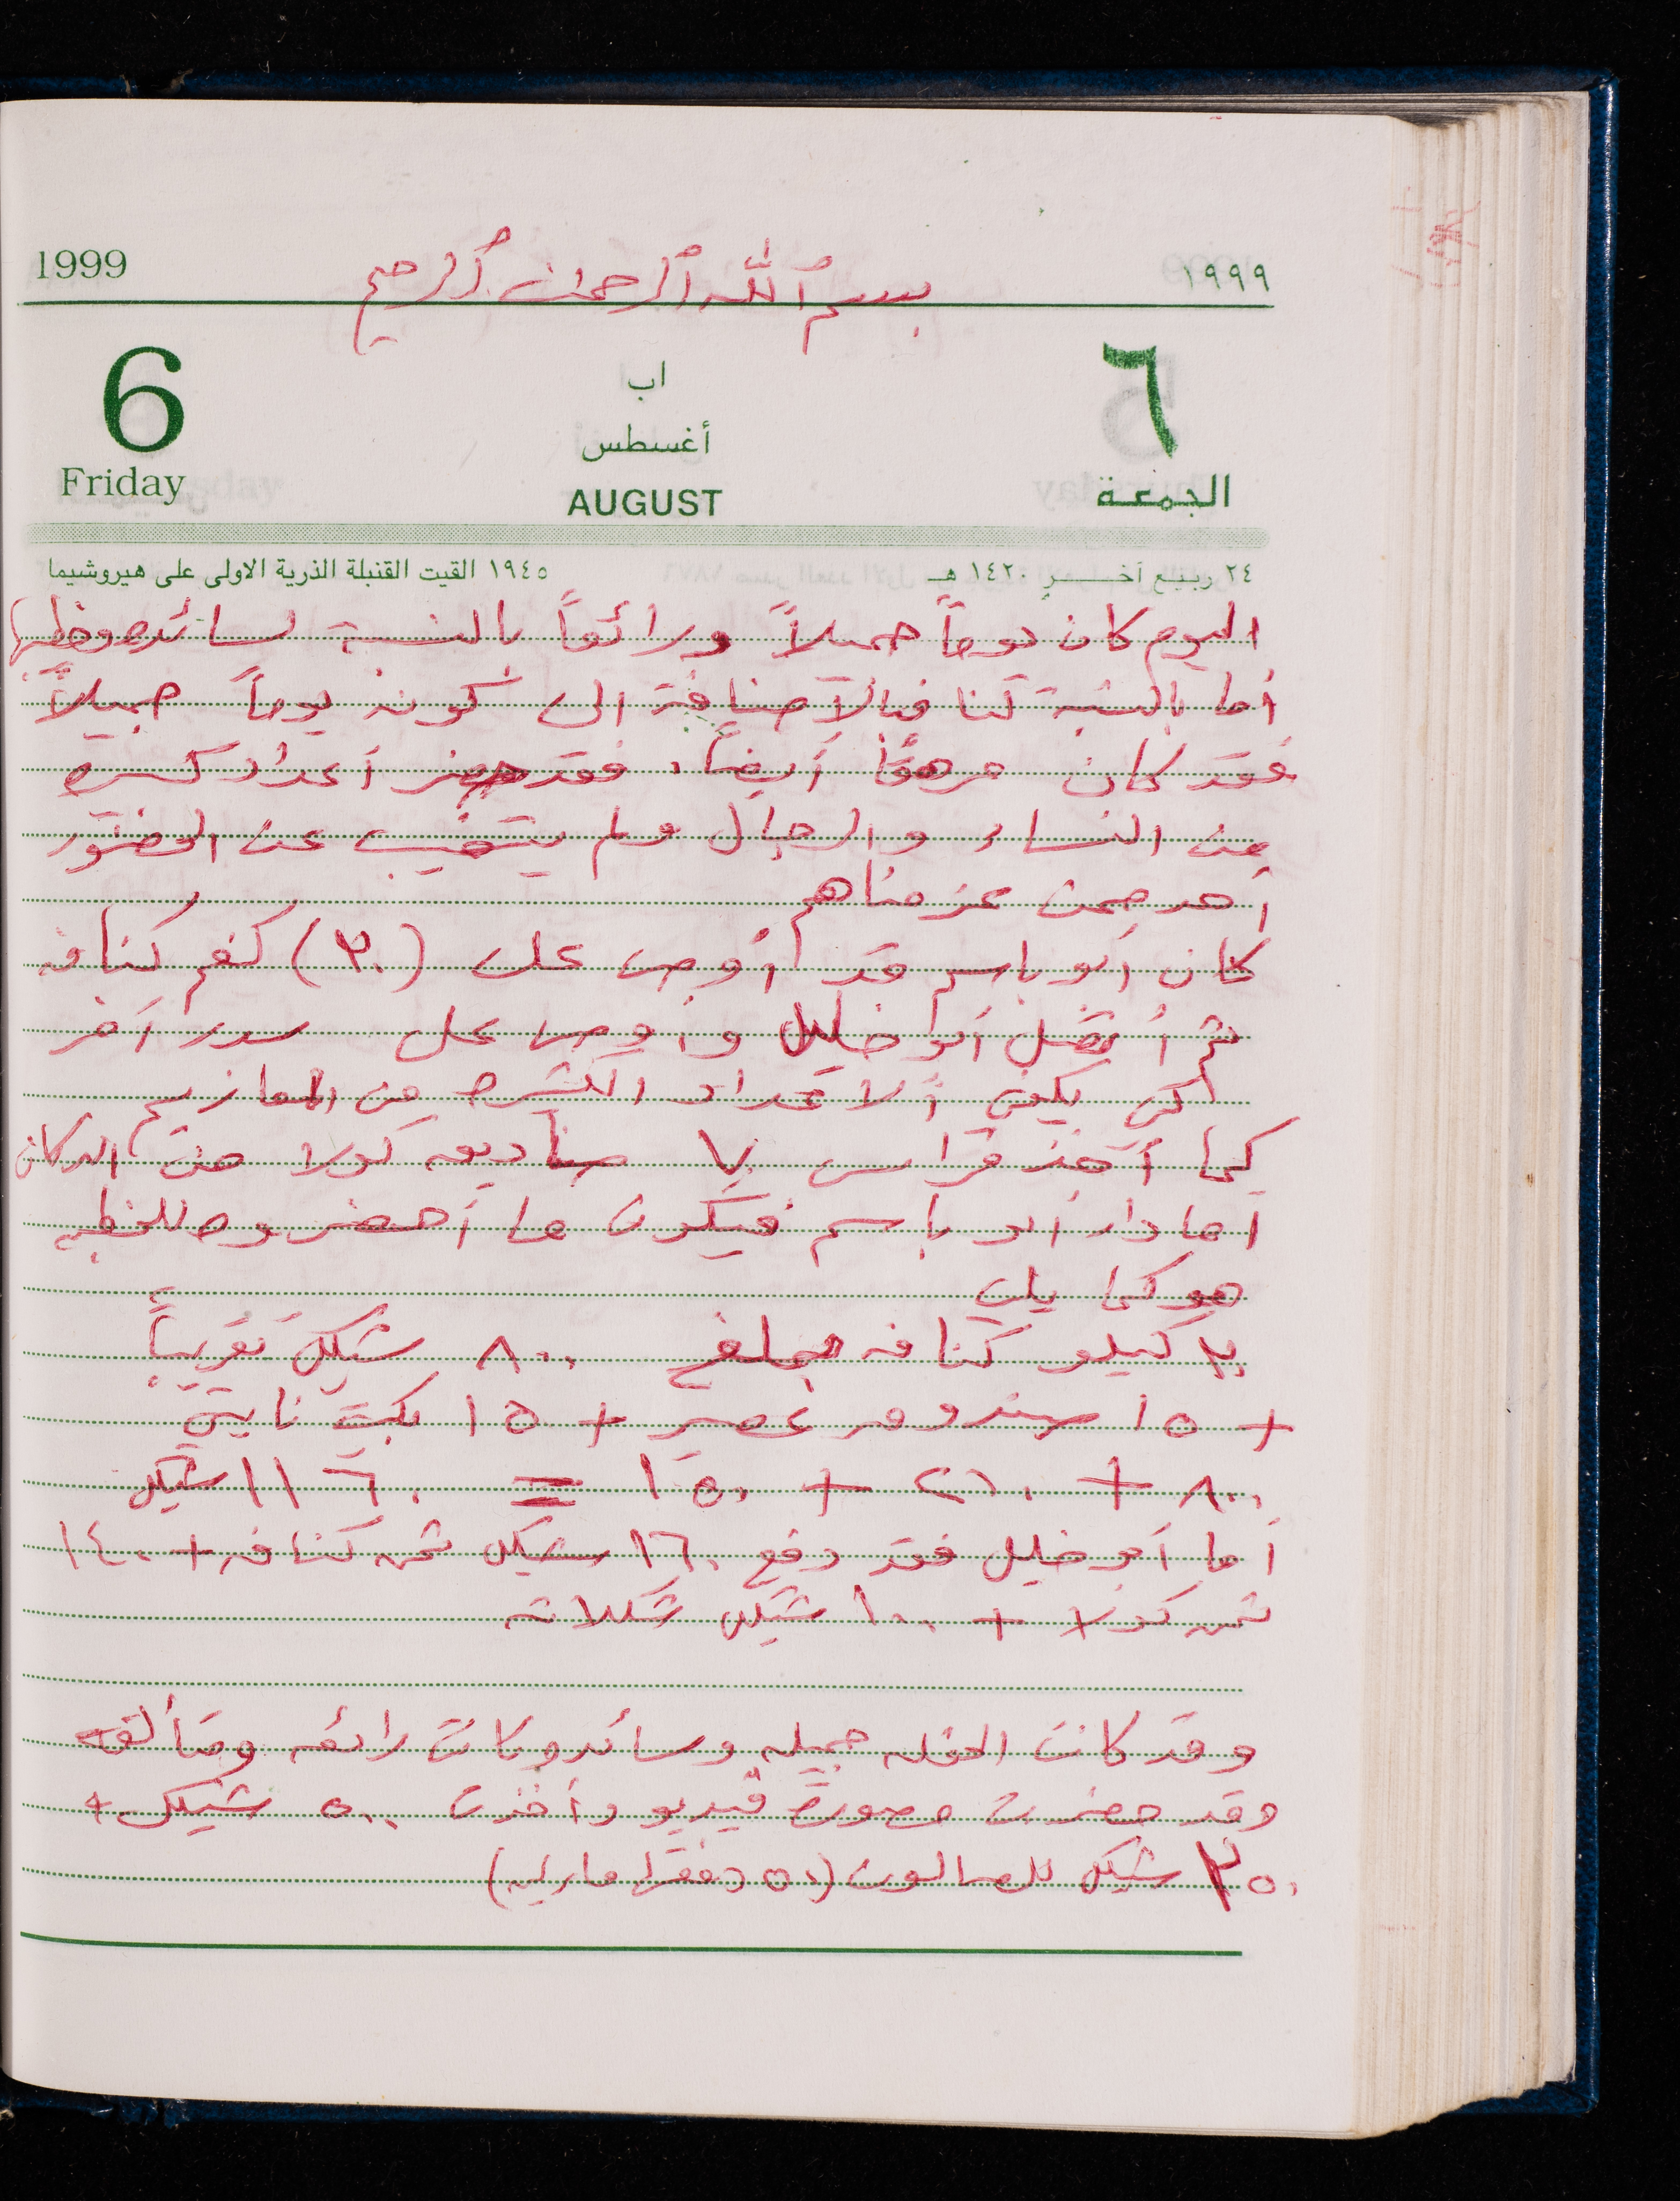 1999 بسم الله الرحمن الرحيم ١٩٩٩
6 اب ٦
أغسطس
Friday AUGUST الجمعة
٢٤ ربيع آخر ١٤٢٠ هـ ١٩٤٥ القيت القنبلة الذرية الاولى على هيروشيما
اليوم كان يوماً جميلاً ورائعاً بالنسبة لسائده وخطيبها
أما بالنسبة لنا فبالآضافة الى كونه يوماً جميلاً
فقد كان مرهقاً أيضاً. فقد حضر أعداد كبيره
من النساء والرجال ولم يتغيب عن الحضور
أحد ممن عزمناهم
كان أبو باسم قد أوصى على (٢٠) كغم كنافه
ثم أتصل أبو خليل وأوصى على سدر آخر
لكي يكفي الاعداد الكثيره من المعازيم
كما أخذ فراس ٧ صناديق كولا من الدكان
أما دار ابو باسم فيكون ما أحضروه للخطبه
هو كما يلي
٢٠ كيلو كنافه بمبلغ ٨٠٠ شيكل تقريباً
+ ١٥ صندوق عصير + ١٥ بكيت
٨٠٠ + ٢١٠ + ١٥٠ = ١١٦٠ شيكل
أما أبو خليل فقد دفع ١٦٠ شيكل ثمن كنافه + ١٤٠
ثمن كولا + ١٠٠ شيكل شكلاته
وقد كانت الحفله جميله وسائده كانت رائعه ومتألقه
وقد حضرت مصورة فيديو وأخذت ٥٠٠ شيكل +
٢٥٠ شيكل للصالون (٥٠ دفعتها ماريه)